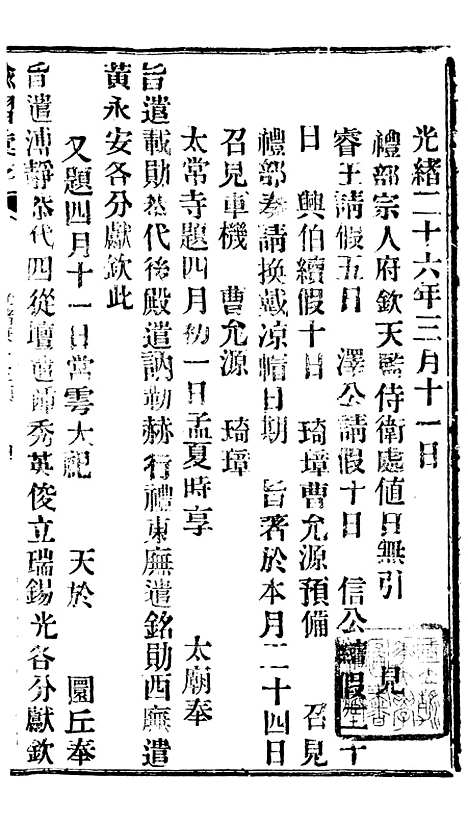 光緒二十六年三月十一日
禮部宗人府欽天監侍衛處値日無引 見
睿王請假五日 澤公請假十日 信公續假二十
日 興伯續假十日 琦璋曹允源預備 召見
禮部奏請換戴凉帽日期 旨著於本月二十四日
召見軍機 曹允源 琦璋
太常寺題四月初一日孟夏時享 太廟奉
旨遣載勛恭代後殿遣訥勒赫行禮東廡遣銘勛西廡遣
黃永安各分獻欽此
又題四月十一日常雩大祀 天於 圜丘奉
旨遣溥靜恭代四從壇遣師秀英俊立瑞錫光各分獻欽